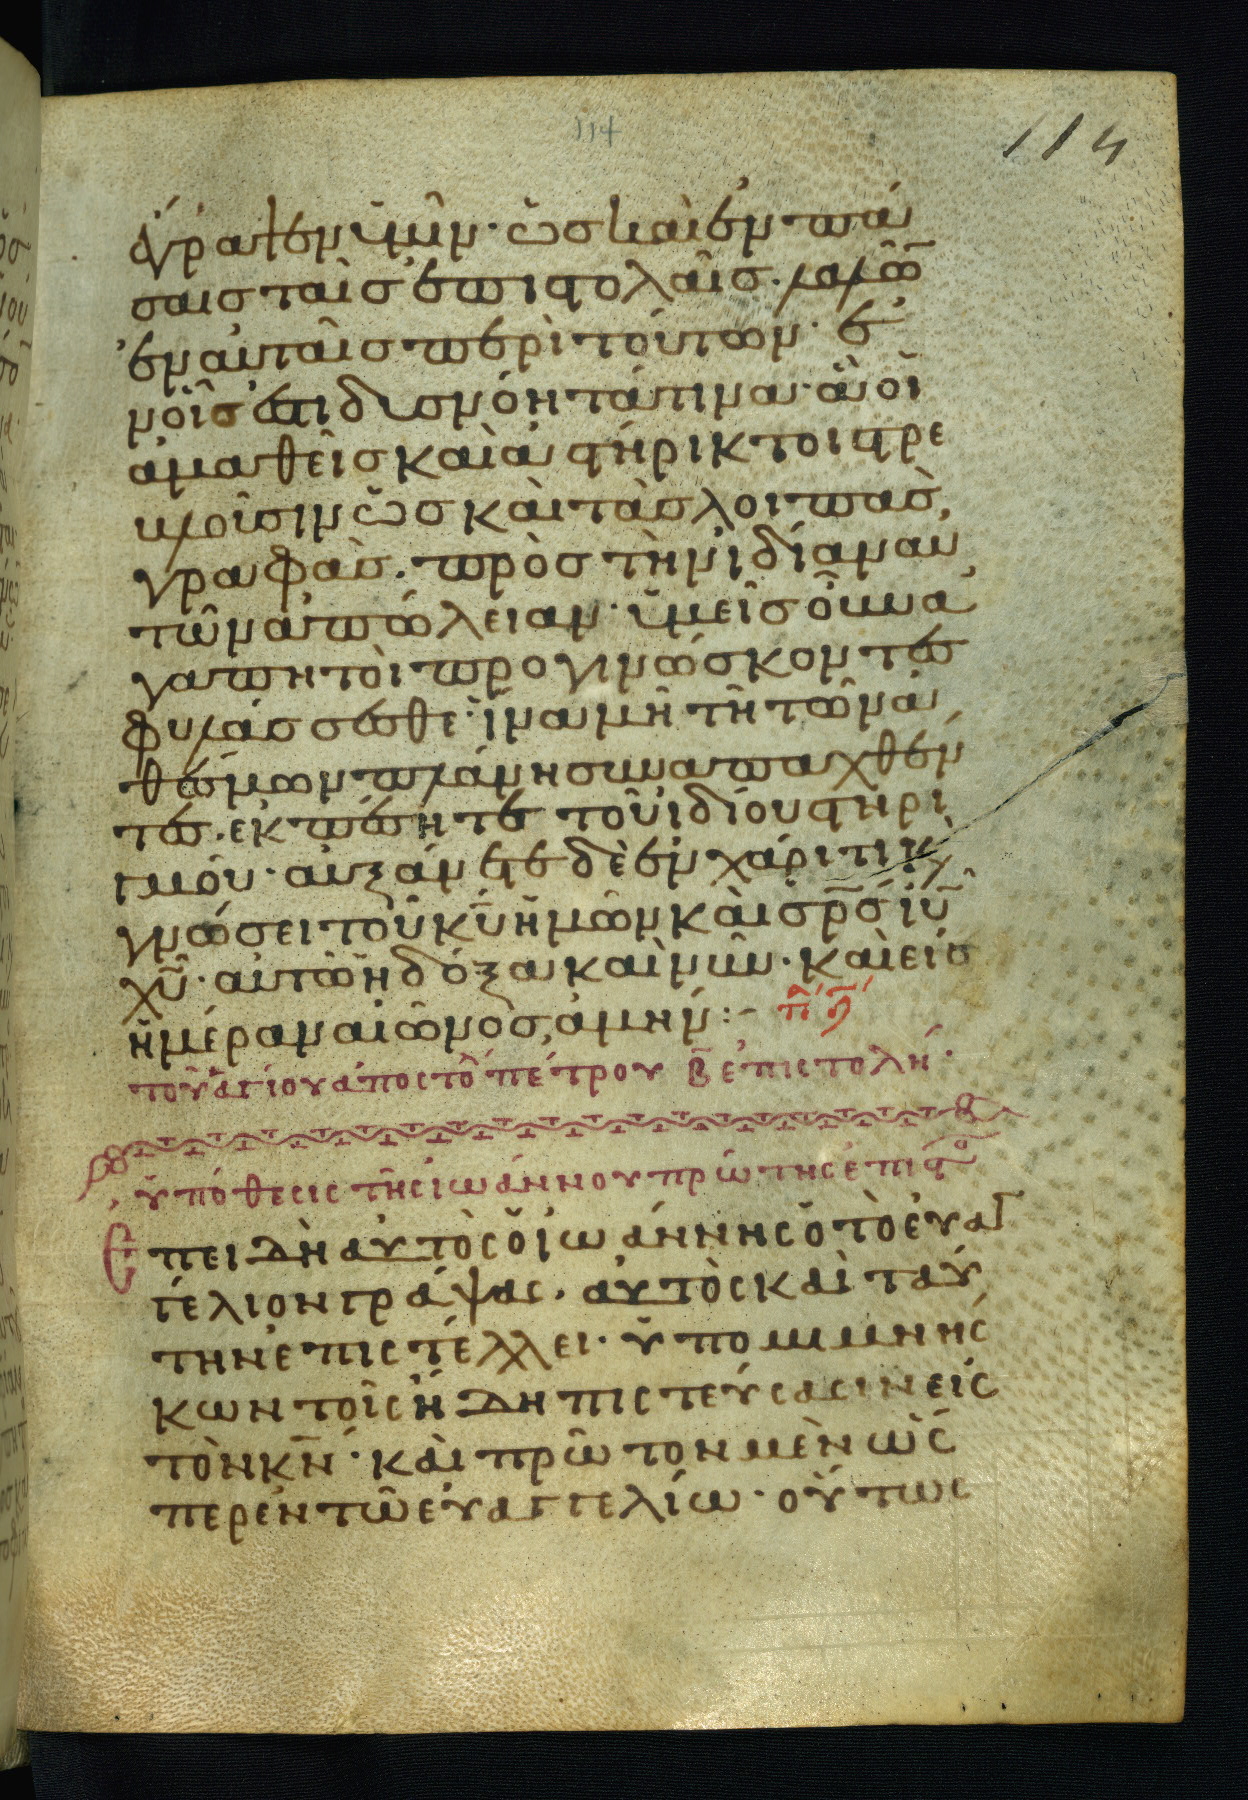 114
114
ἔγραψεν ὑμῖν· ὡς καὶ ἐν πά
σαις ταῖς ἐπιστολαῖς. λαλῶ̅
ἐν αὐταῖς περὶ τούτων· ἐ
ν οἷς ἐστι δυσνόητά τινα· ἃ οἱ
ἀμαθεῖς καὶ ἀστήρικτοι στρε
βλοῦσιν ὡς καὶ τὰς λοιπὰς,
γραφὰς. πρὸς τὴν ἰδίαν αυ
τῶν ἀπώλειαν· ὑμεῖς οὖν ἀ
γαπητοὶ προγινώσκοντες
φυλάσσεσθε· ἵνα μὴ τῆ τῶν ἀ
θέσμων πλάνη συναπαχθέν
τες. ἐκπέσητε τοῦ ἰδίου στηρι
γμοῦ· αὐξάνεσθε δὲ ἐν χάριτι κ,
γνώσει τοῦ κ̅υ̅ ἡμῶν καὶ σ̅ρ̅σ̅ ἰ̅υ̅
χ̅υ̅· αὐτῶ ἡ δόξα καὶ νῦν· καὶ εἰς
ἡμέραν αἰῶνος, ἀμήν:-
τοῦ ἁγίου ἀποστό πέτρου β̅ ἐπιστολή·
ὑπόθεσις τῆς ἰωάννου πρώτης ἐπιστο
Ἐπειδὴ αὐτὸς ὁ ἰωάννης ὁ τὸ εὐαγ
γέλιον γράψας. αὐτὸς καὶ ταύ
την ἐπιστέλλει· ὑπομιμνήσ
κων τοῖς ἤδη πιστεύσασιν εἰς
τὸν κ̅ν̅· καὶ πρῶτον μὲν ὡς
περ ἐν τῶ εὐαγγελίω· οὕτως